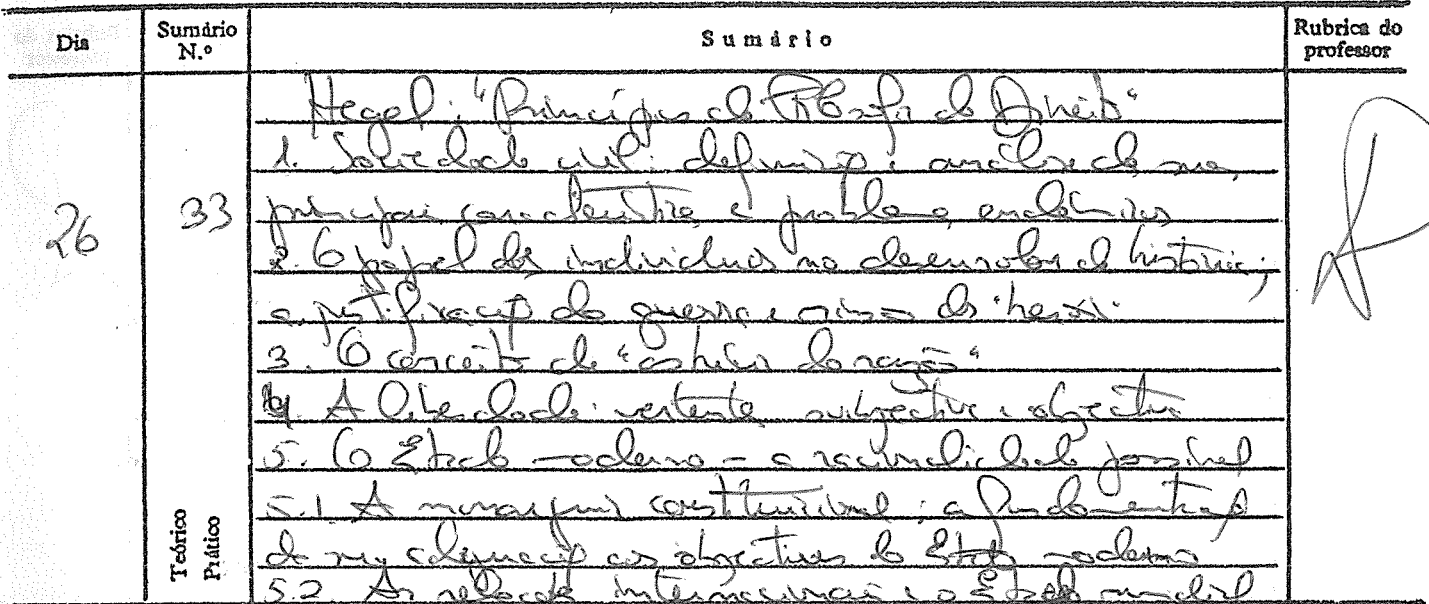 Dia
Sumário N.º
Sumário
Rubrica do professor
26
33
Teórico
Prático
Hegel: "Princípios da Filosofia do Direito"
1. Sociedade civil: definição e análise de suas
principais características e problemas endémicos
2. O papel dos indivíduos no desenrolar da história;
a justificação da guerra e dos "heróis"
3. O conceito de "astúcia da razão"
4 A Liberdade: vertente subjectiva e objectiva
5. O Estado moderno - a racionalidade possível
5.1 A monarquia constitucional; a fundamentação
da sua adequação aos objectivos do Estado moderno
5.2. As relações internacionais e o Estado mundial